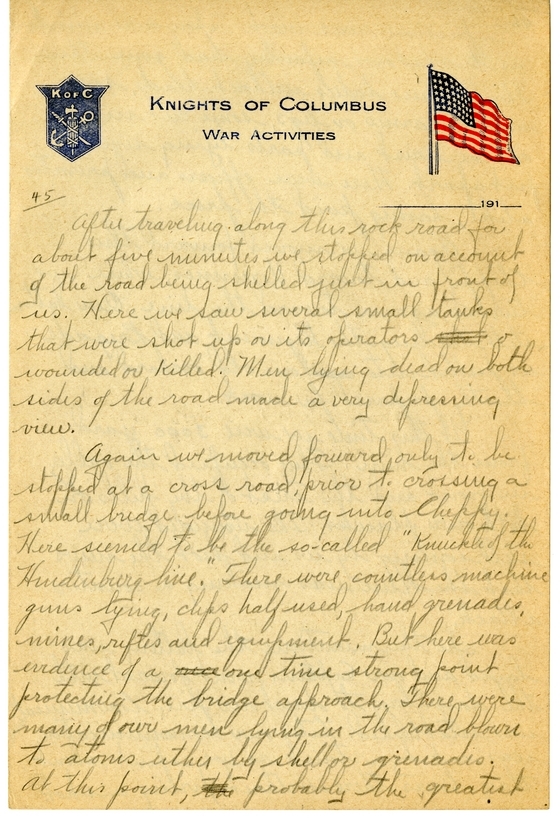 K OF C
KNIGHTS OF COLUMBUS
WAR ACTIVITIES
191
45
After traveling along this rock road for
about five minutes we stopped on account
of the road being shelled just in front of
us. Here we saw several small tanks
that were shot up or its operators shot o
wounded or killed. Men lying dead on both
sides of the road made a very depressing
view.
Again we moved forward only to be
stopped at a cross road, prior to crossing a
small bridge before going into Cheppy.
Here seemed to be the so-called "Knuckle of the
Hindenburg line." There were countless machine
guns lying, clips half used, hand grenades,
mines, rifles and equipment. But here was
evidence of a once one time strong point
protecting the bridge approach. There were
many of our men lying in the road blown
to atoms either by shell or grenades.
At this point, the probably the greatest